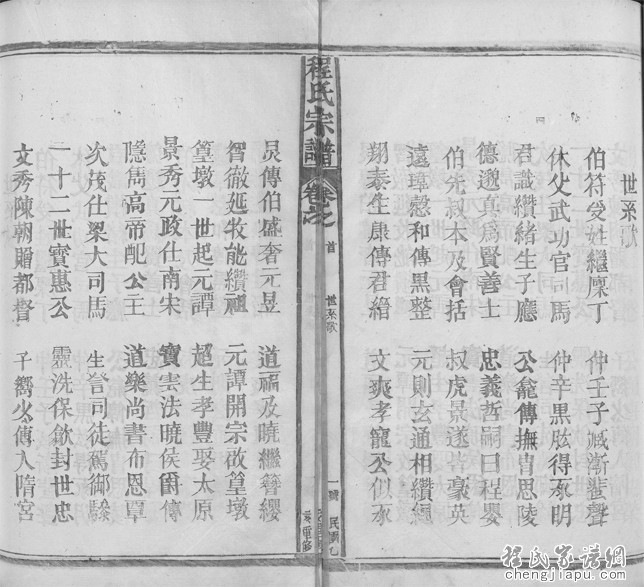 世系歌
伯符受姓繼廩丁 仲壬子臧漸蜚聲
休父武功官司馬 仲辛黑肱得承明
君識纘緒生子應 公龕傳撫胄思陵
德邈真為賢善士 忠義哲嗣曰程嬰
伯先叔本及會括 叔虎景遂皆豪英
遠璋愨和傳黑整 元則玄通相纘繩
翔泰生康傳君綰 文爽孝寵公似承
程氏宗譜 卷之首 世系歌 一號 民國九
炅傳伯盛奢元昱 道福及曉繼簪纓
智徹延牧能纘祖 元譚開宗改篁墩
篁墩一世起元譚 超生孝豐娶太原
景秀元政仕南宋 寶雲法曉侯爵傳
隱雋高帝配公主 道樂尚書布恩覃
次茂仕梁大司馬 生詧司徒篤御驂
一十二世寶惠公 靈洗保歙封世忠
文秀陳朝贈都督 子嚮少傳入隋宮
程氏家譜網
chengjiapu.com